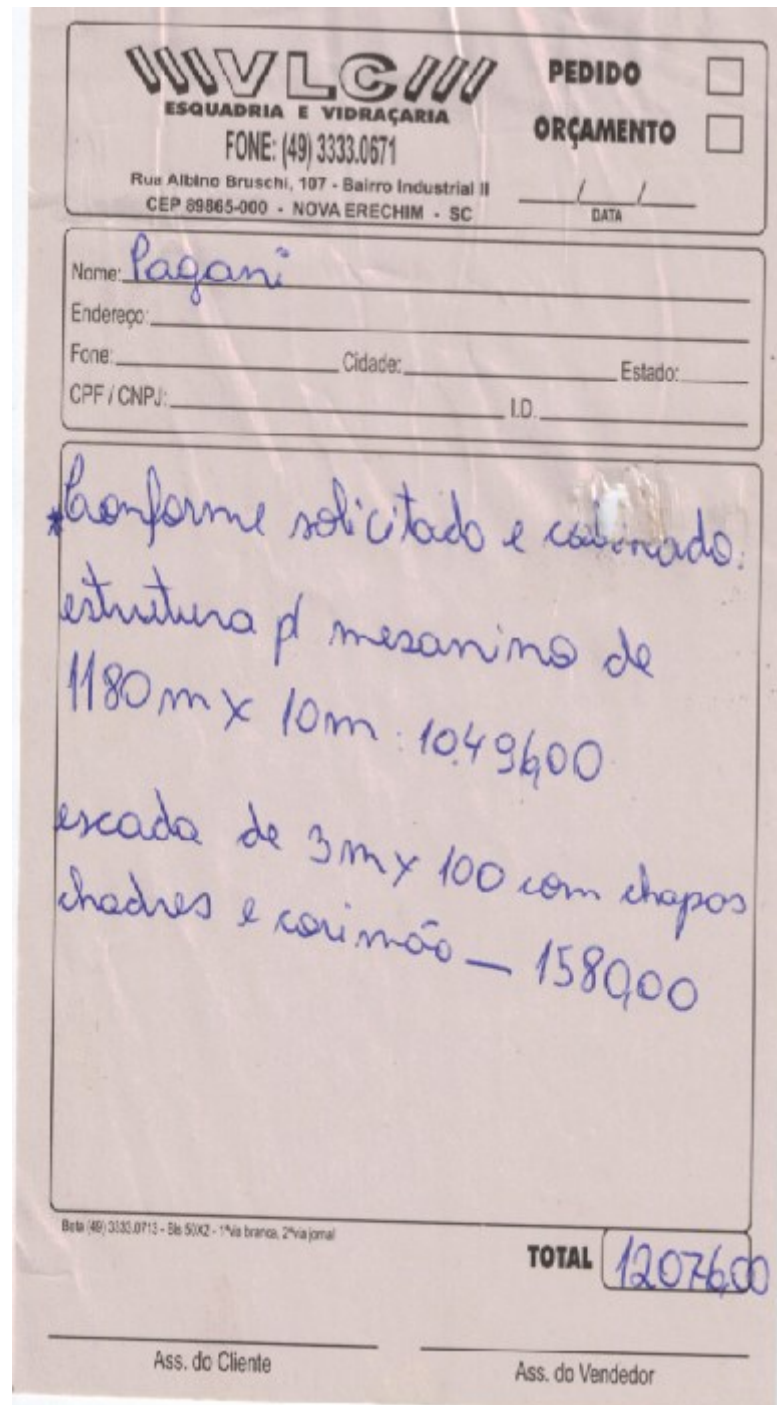 VLC
PEDIDO
ESQUADRIA E VIDRAÇARIA
ORÇAMENTO
FONE: (49) 3333.0671
Rua Albino Bruschi, 107 - Bairro Industrial II
CEP 89865-000 - NOVA ERECHIM - SC
___/___/___
DATA
Nome: Pagani
Endereço:
Fone: Cidade: Estado:
CPF / CNPJ: I.D.
*Conforme solicitado e combinado:
estrutura p/ mesanino de
1180 m x 10m : 10.496,00
escada de 3m x 100 com chapas
chadres e corimão — 1580,00
Beta (49) 3333.0713 - Bls 50X2 - 1ª via branca, 2ª via jornal
TOTAL 12076,00
Ass. do Cliente Ass. do Vendedor